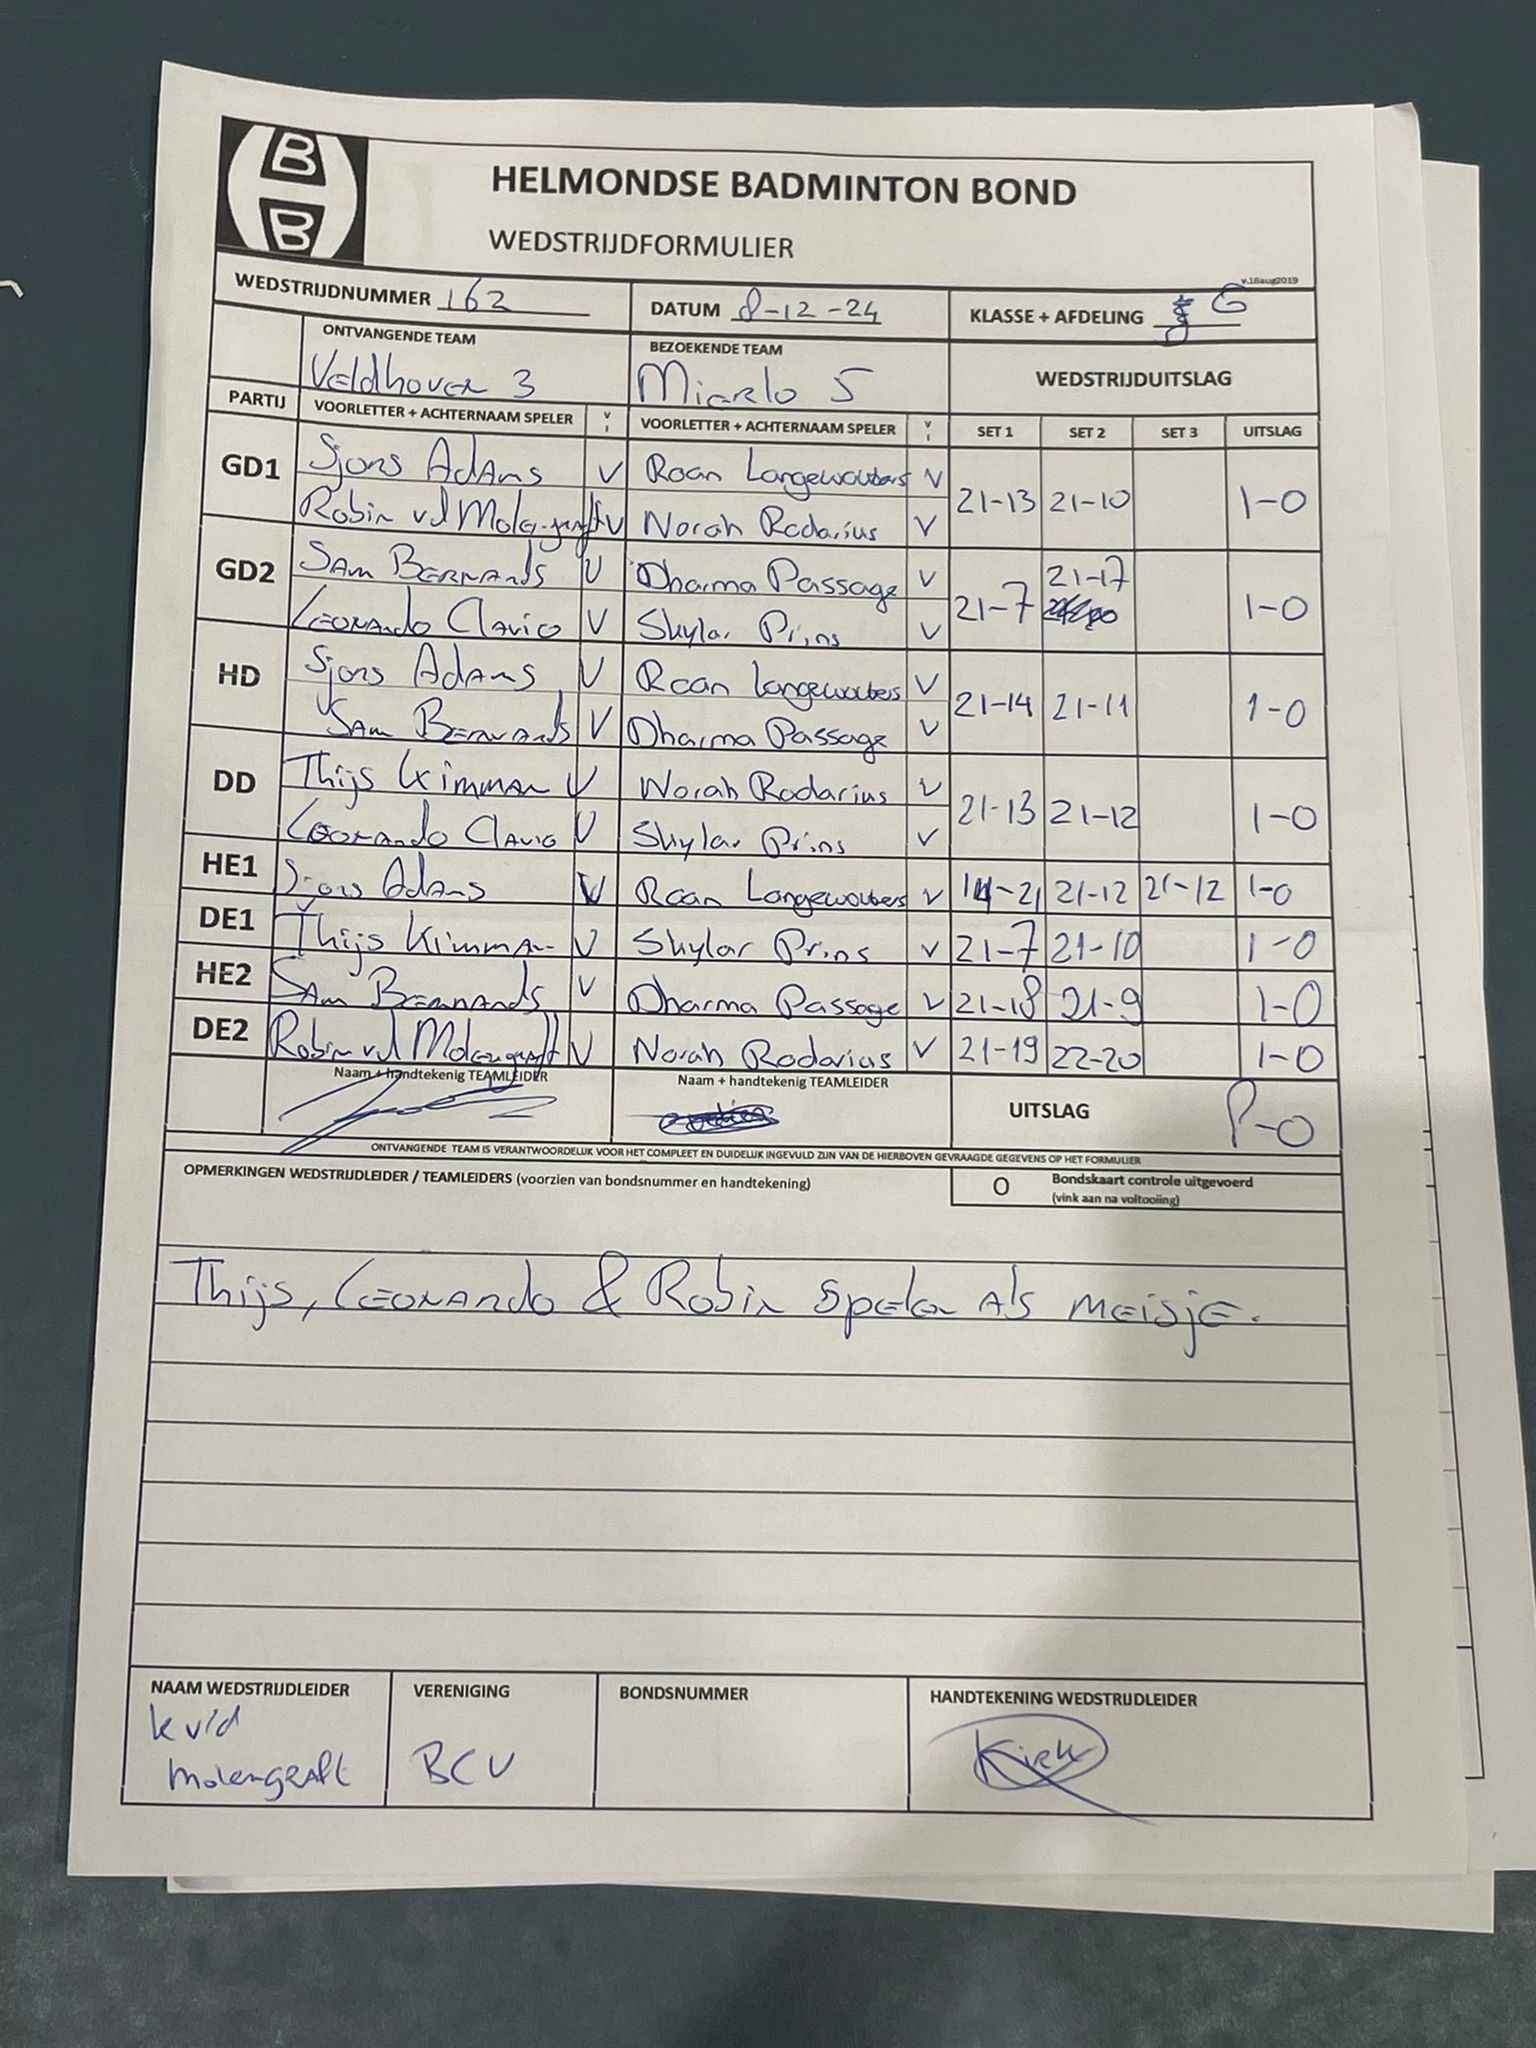 B
B
HELMONDSE BADMINTON BOND
WEDSTRIJDFORMULIER
v.16aug2019
WEDSTRIJDNUMMER 162 DATUM 8-12-24 KLASSE + AFDELING G
ONTVANGENDE TEAM BEZOEKENDE TEAM
Veldhoven 3 Mierlo 5 WEDSTRIJDUITSLAG
PARTIJ VOORLETTER + ACHTERNAAM SPELER V I VOORLETTER + ACHTERNAAM SPELER V I SET 1 SET 2 SET 3 UITSLAG
GD1 Sjors Adams V Roan Langewouters V 21-13 21-10 1-0
Robin vd Molengraft V Norah Rodarius V
GD2 Sam Bernards V Dharma Passage V 21-7 21-17 1-0
Leonardo Clavio V Skylar Prins V
HD Sjors Adams V Roan Langewouters V 21-14 21-11 1-0
Sam Bernards V Dharma Passage V
DD Thijs Kimman V Norah Rodarius V 21-13 21-12 1-0
Leonardo Clavio V Skylar Prins V
HE1 Sjors Adams V Roan Langewouters V 14-21 21-12 21-12 1-0
DE1 Thijs Kimman V Skylar Prins V 21-7 21-10 1-0
HE2 Sam Bernards V Dharma Passage V 21-18 21-9 1-0
DE2 Robin vd Molengraft V Norah Rodarius V 21-19 22-20 1-0
Naam + handtekenig TEAMLEIDER Naam + handtekenig TEAMLEIDER
UITSLAG 8-0
ONTVANGENDE TEAM IS VERANTWOORDELIJK VOOR HET COMPLEET EN DUIDELIJK INGEVULD ZIJN VAN DE HIERBOVEN GEVRAAGDE GEGEVENS OP HET FORMULIER
OPMERKINGEN WEDSTRIJDLEIDER / TEAMLEIDERS (voorzien van bondsnummer en handtekening) O Bondskaart controle uitgevoerd
(vink aan na voltooiing)
Thijs, Leonardo & Robin spelen als meisje.
NAAM WEDSTRIJDLEIDER VERENIGING BONDSNUMMER HANDTEKENING WEDSTRIJDLEIDER
k v/d
Molengraft BCV Kirk